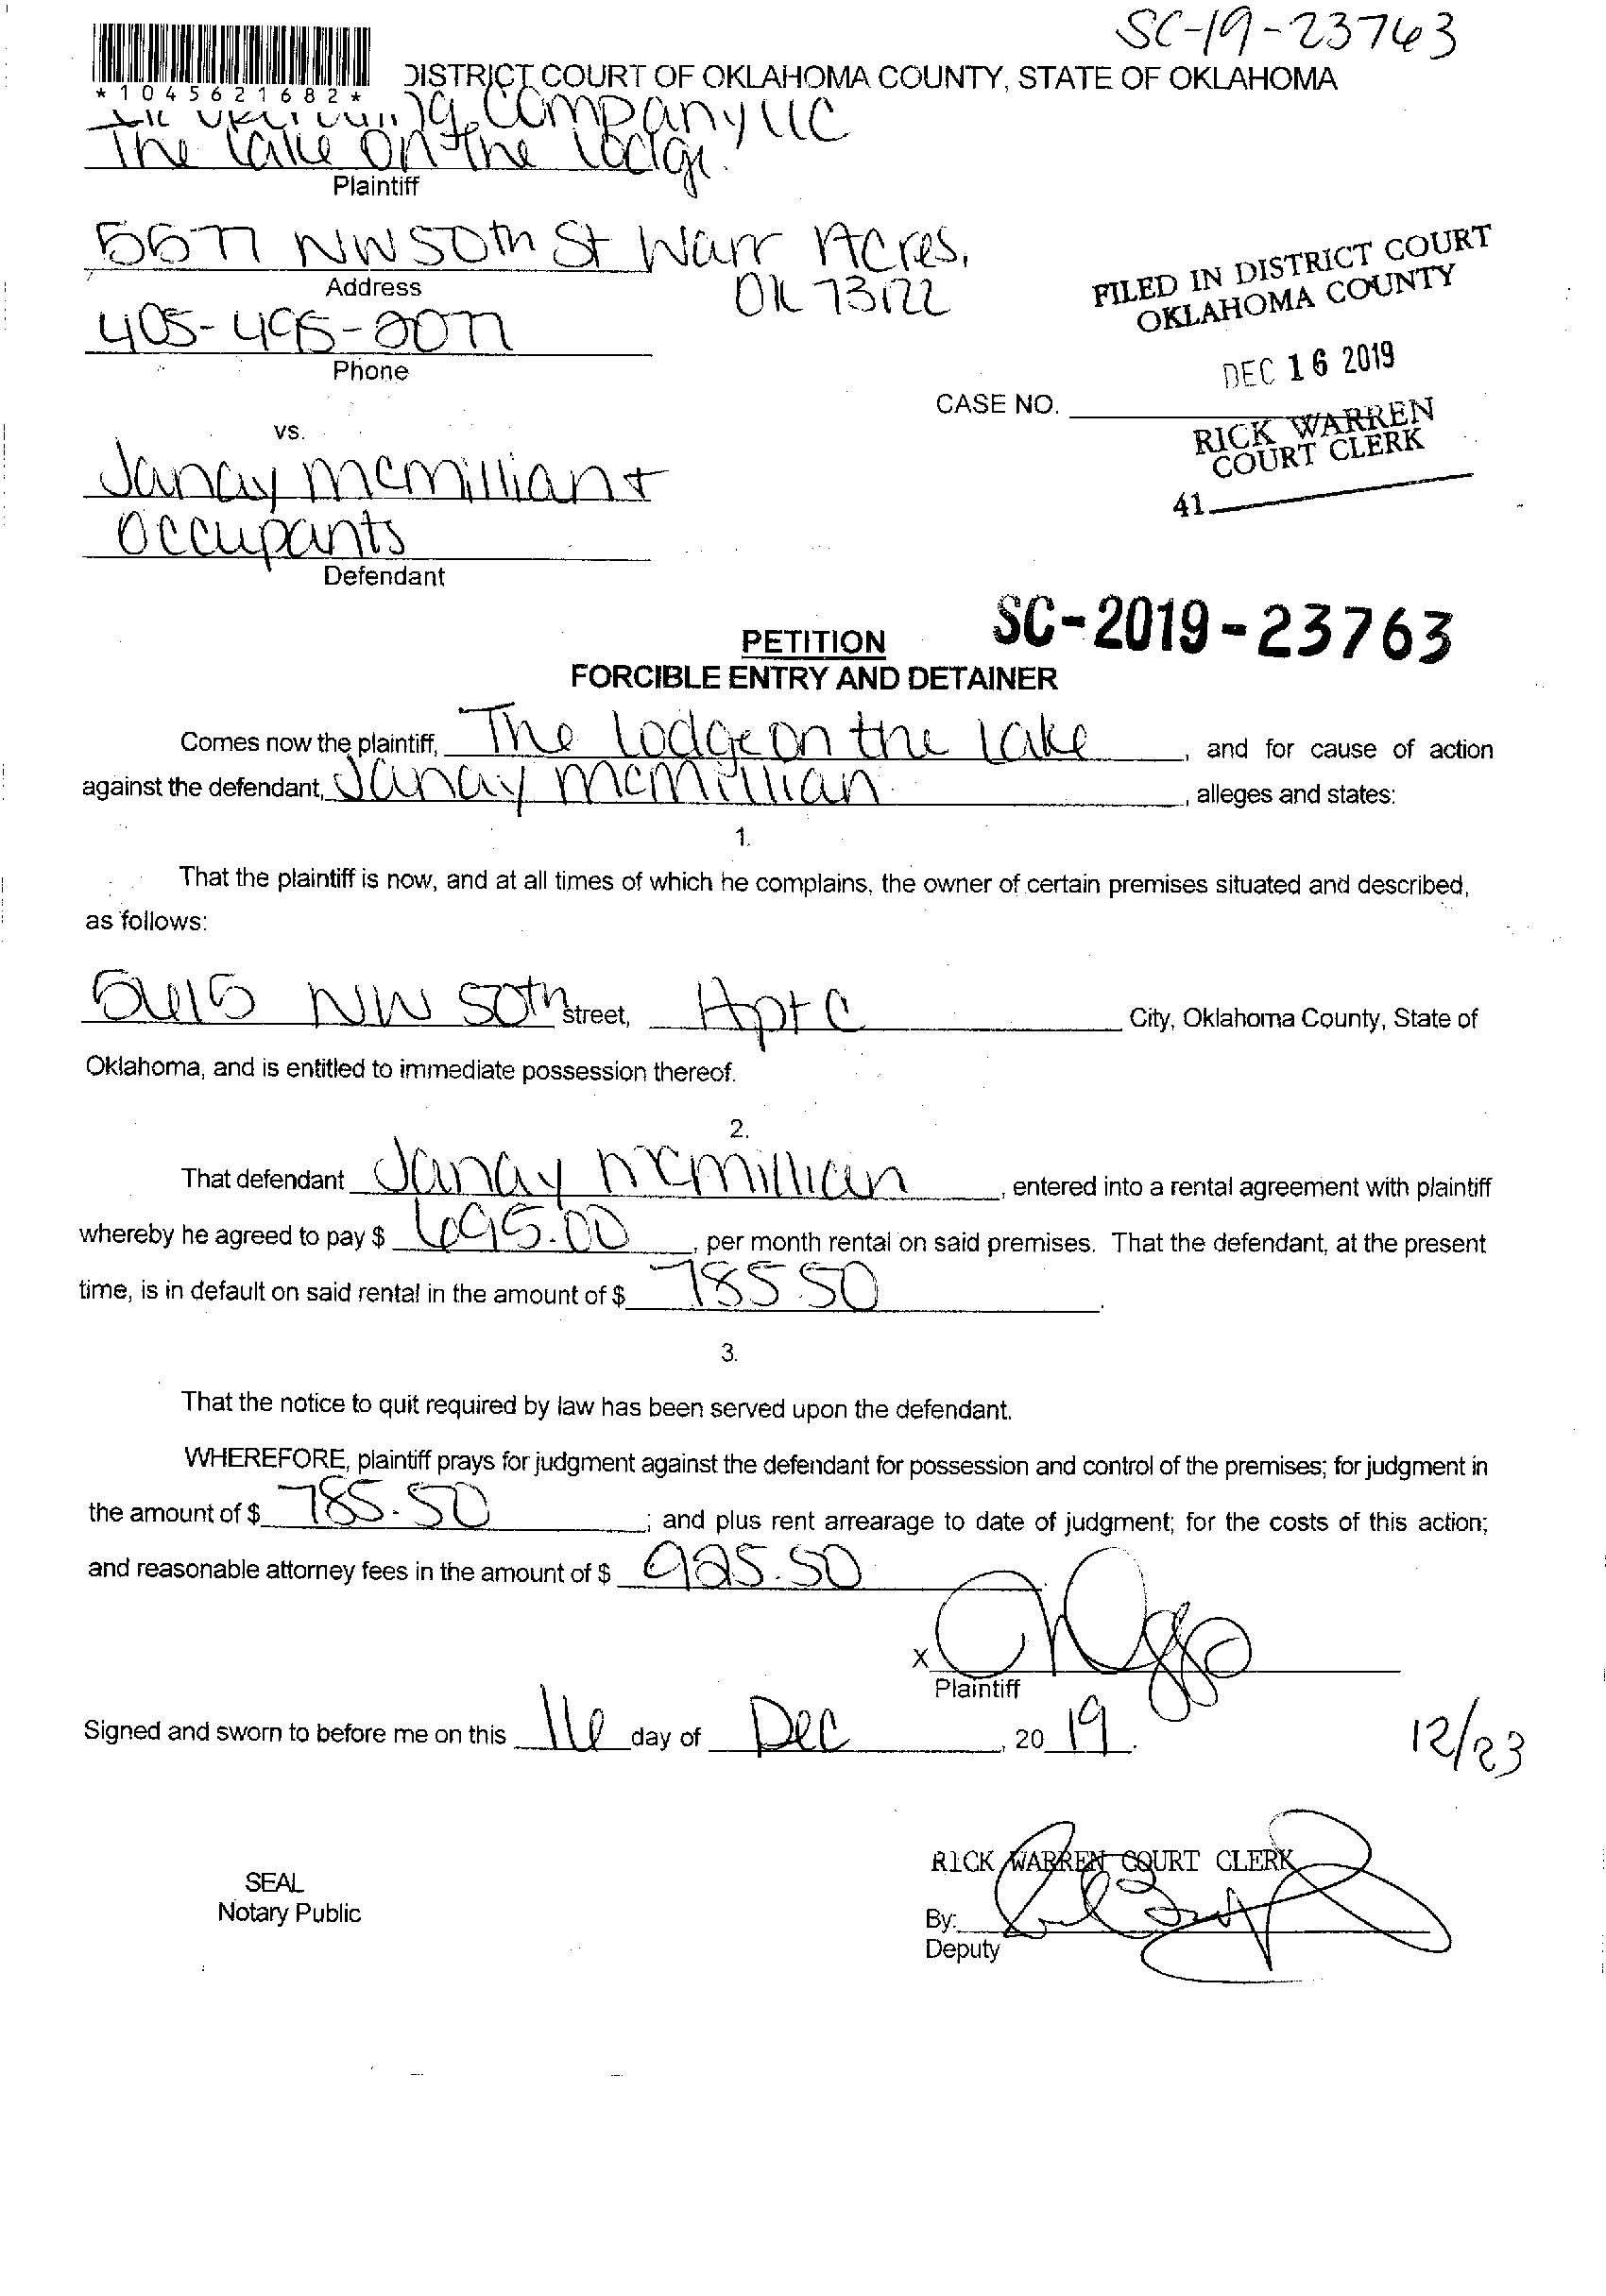 SC-19-23763
*1045621682*
DISTRICT COURT OF OKLAHOMA COUNTY, STATE OF OKLAHOMA
Company LLC
The Lake On the lodge
Plaintiff
5577 NW 50th St Warr Acres,
Address
OK 73122
405-495-2077
Phone
FILED IN DISTRICT COURT
OKLAHOMA COUNTY
DEC 16 2019
CASE NO.
RICK WARREN
COURT CLERK
41
vs.
Janay mcmillian +
Occupants
Defendant
SC-2019-23763
PETITION
FORCIBLE ENTRY AND DETAINER
Comes now the plaintiff, The lodge on the lake, and for cause of action
against the defendant, Janay mcmillian, alleges and states:
1.
That the plaintiff is now, and at all times of which he complains, the owner of certain premises situated and described,
as follows:
5615 NW 50th street, Apt C City, Oklahoma County, State of
Oklahoma, and is entitled to immediate possession thereof.
2.
That defendant Janay mcmillian, entered into a rental agreement with plaintiff
whereby he agreed to pay $ 695.00, per month rental on said premises. That the defendant, at the present
time, is in default on said rental in the amount of $ 785.50.
3.
That the notice to quit required by law has been served upon the defendant.
WHEREFORE, plaintiff prays for judgment against the defendant for possession and control of the premises; for judgment in
the amount of $ 785.50; and plus rent arrearage to date of judgment; for the costs of this action;
and reasonable attorney fees in the amount of $ 925.50
X
Plaintiff
Signed and sworn to before me on this 16 day of Dec, 2019.
12/23
RICK WARREN COURT CLERK
SEAL
Notary Public
By:
Deputy